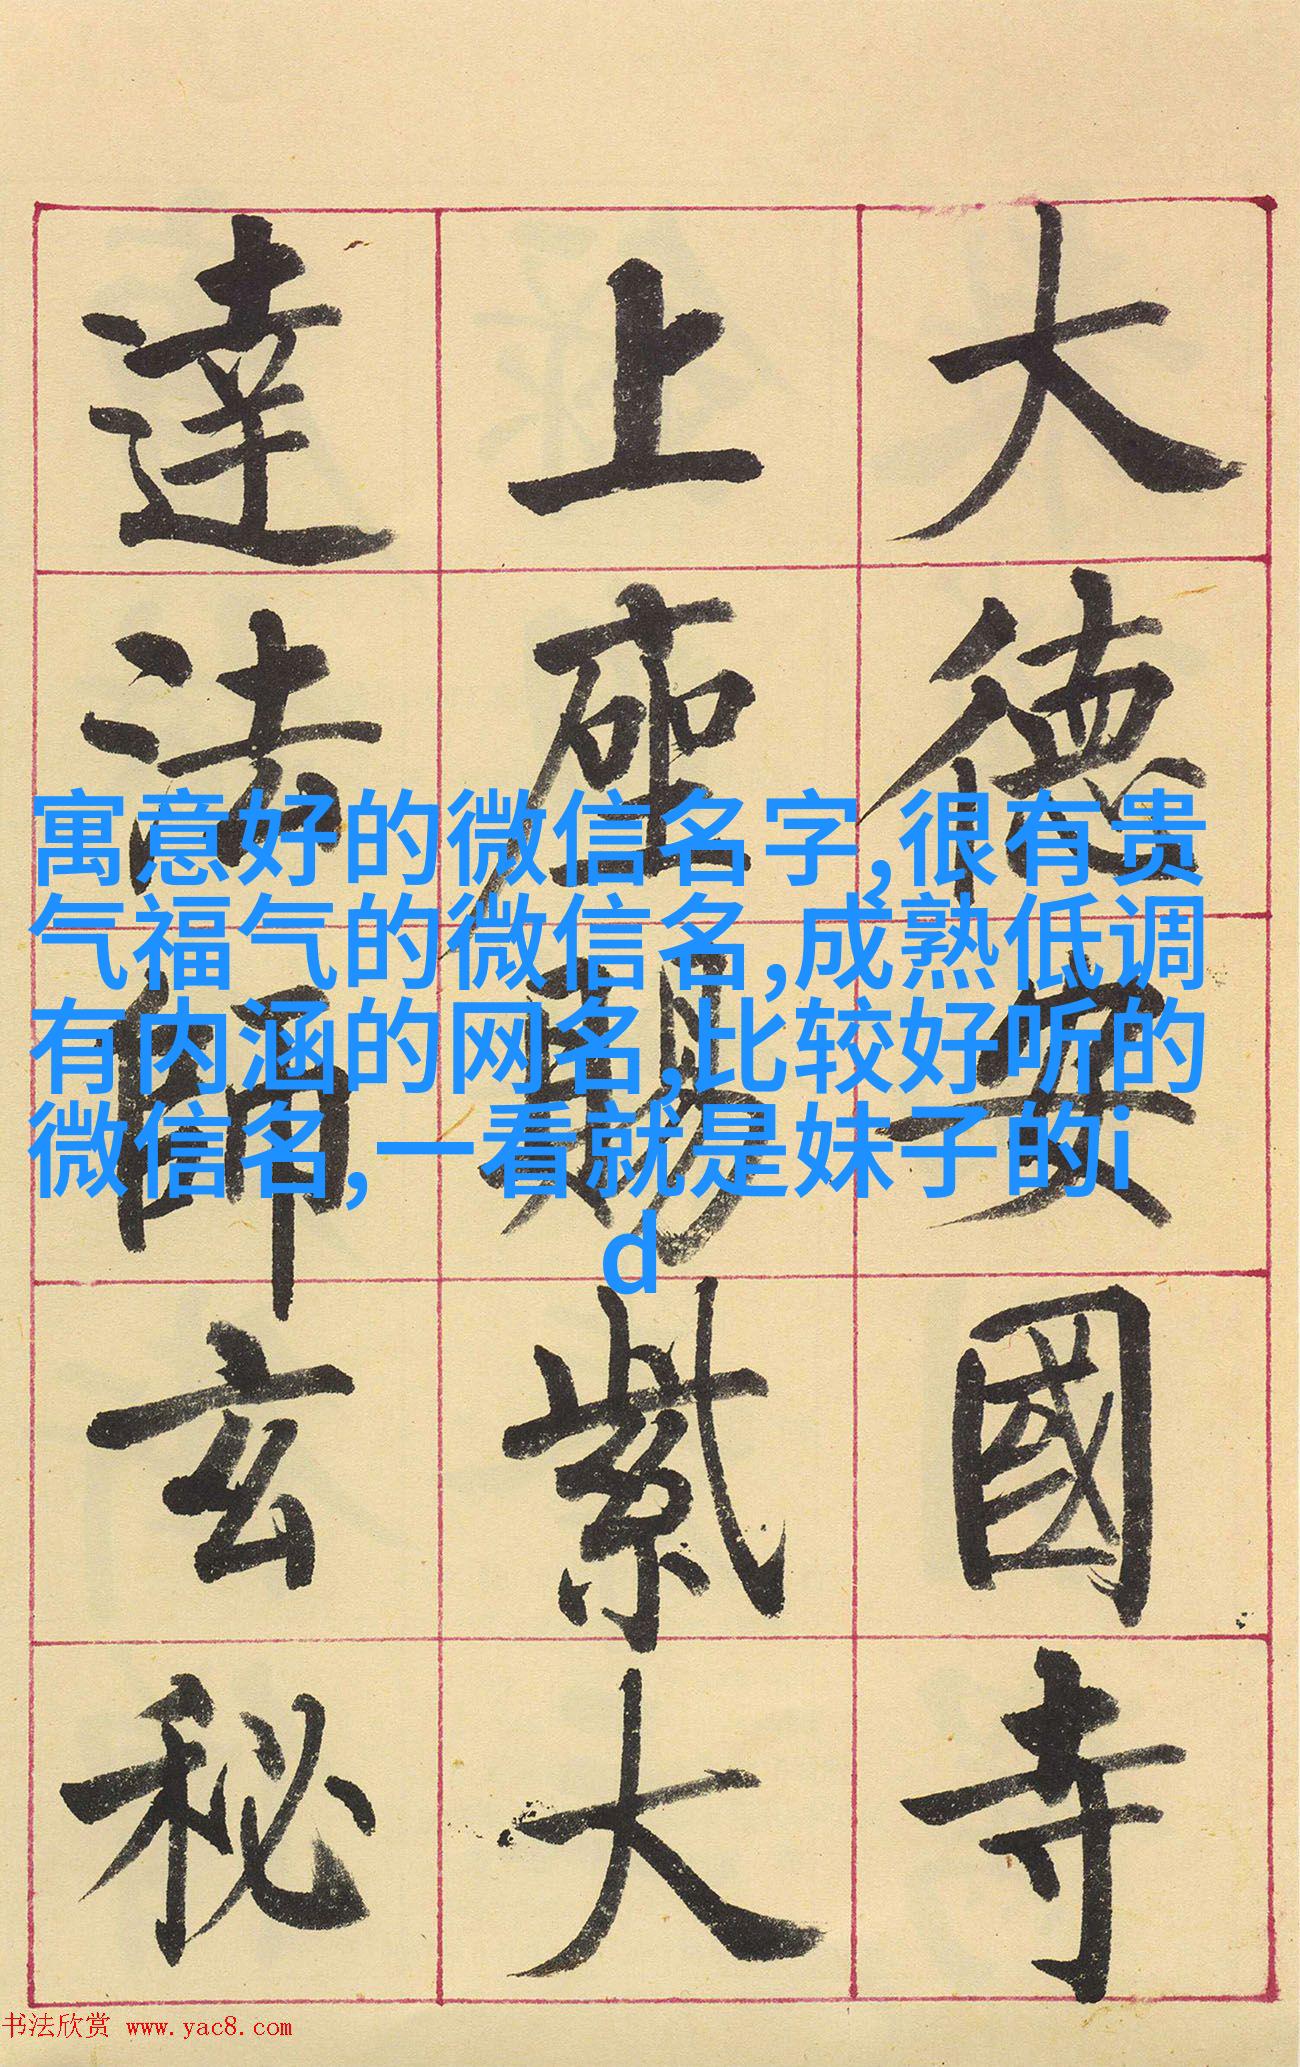 大德安國寺
上座賜紫大
達法師玄秘
寓意好的微信名字,很有贵
气福气的微信名,成熟低调
有内涵的网名,比较好听的
微信名,一看就是妹子的i
d
书法欣赏 www.yac8.com